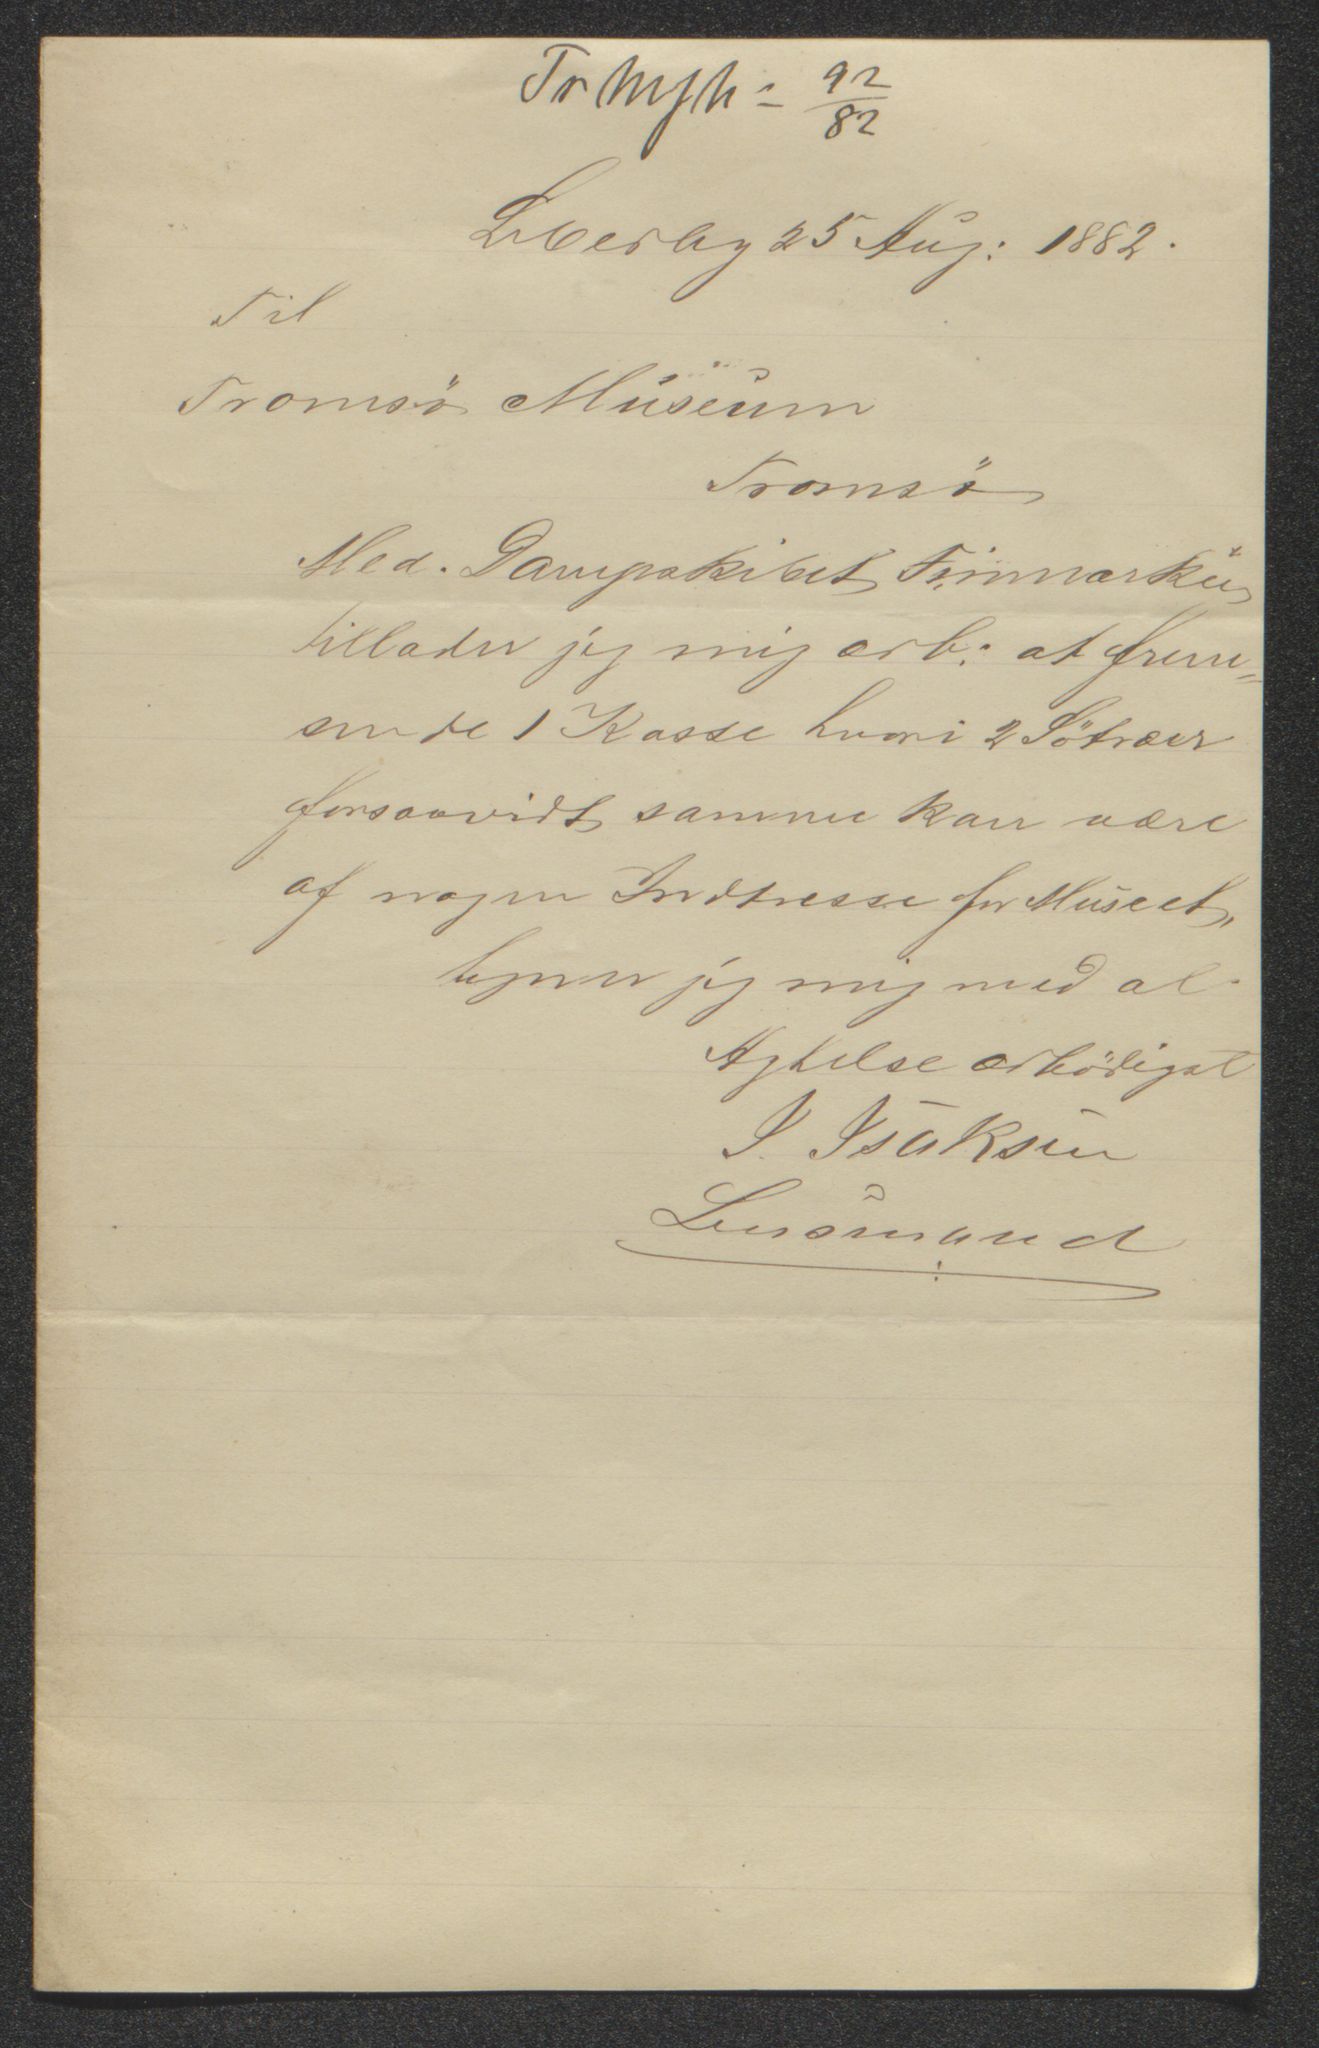 Tr Msm = 92/82
Leerbg 25 Aug: 1882.
Til
Tromsö Museum
Tromsö
Med. Dampskibet Finmarken
tillader jeg mig ærb: at frem„
sende 1 Kasse hvori 2 Sötræer
forsaavidt samme kan være
af nogen Indtresse for Museet,
tegner jeg mig med al
Agtelse ærbödigst
I. Isaksen
Lensmand